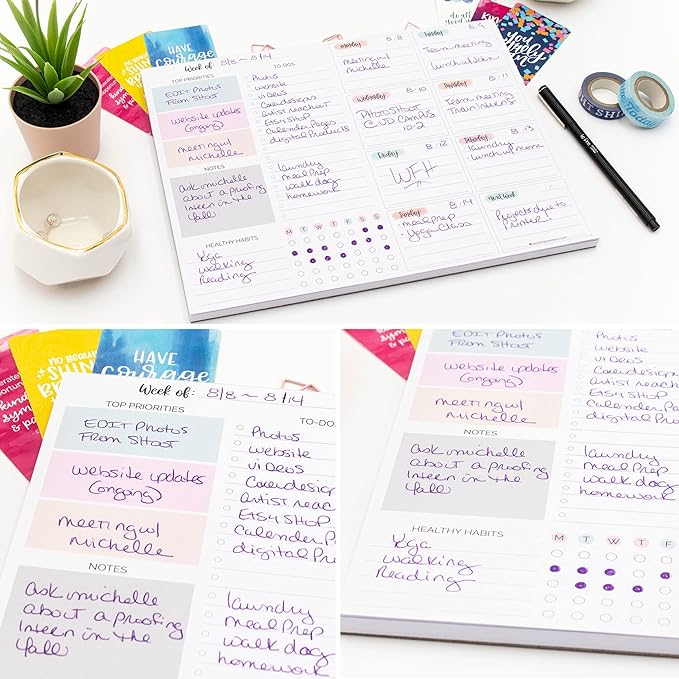 HAVE
courage
Week of: 8/8 ~ 8/14
TOP PRIORITIES
EDIT Photos
From Shoot
website updates
(ongoing)
meeting w/
michelle
NOTES
ask michelle
about a proofing
Intern in the
fall
HEALTHY HABITS
Yoga
walking
Reading
TO-DO
Photos
website
videos
Coverdesigns
artist reachout
Etsy SHOP
Calender Pages
digital Products
laundry
meal Prep
walk dog
homework
M T W T F S S
Monday
8/8
meeting w/
michelle
Tuesday
8/9
Team meeting
Lunch w/
Wednesday
8/10
Photoshoot
@ WD Campus
10-2
Thursday
8/11
Team meeting
Train Interns
Friday
8/12
WFH
Saturday
8/13
laundry
lunch w/ mom
Sunday
8/14
meal prep
Yoga Class
next week
Projects due to
Printer!
SHIT
Today
NO
SHIN
BR
HAVE
courage
Week of: 8/8 ~ 8/14
TOP PRIORITIES
EDIT Photos
From Shoot
website updates
(ongoing)
meeting w/
michelle
NOTES
ask michelle
about a proofing
Intern in the
fall
TO-DO
Photos
website
videos
Coverdesign
artist reach
Etsy SHOP
Calender Pa
digital Pro
laundry
meal Prep
walk dog
homework
EDIT Photos
From Shoot
website updates
(ongoing)
meeting w/
michelle
NOTES
ask michelle
about a proofing
Intern in the
fall
HEALTHY HABITS
Yoga
walking
Reading
Photos
website
videos
Coverdesig
artist reach
Etsy SHOP
Calender Pa
digital Prod
laundry
meal Prep
walk dog
homework
M T W T F